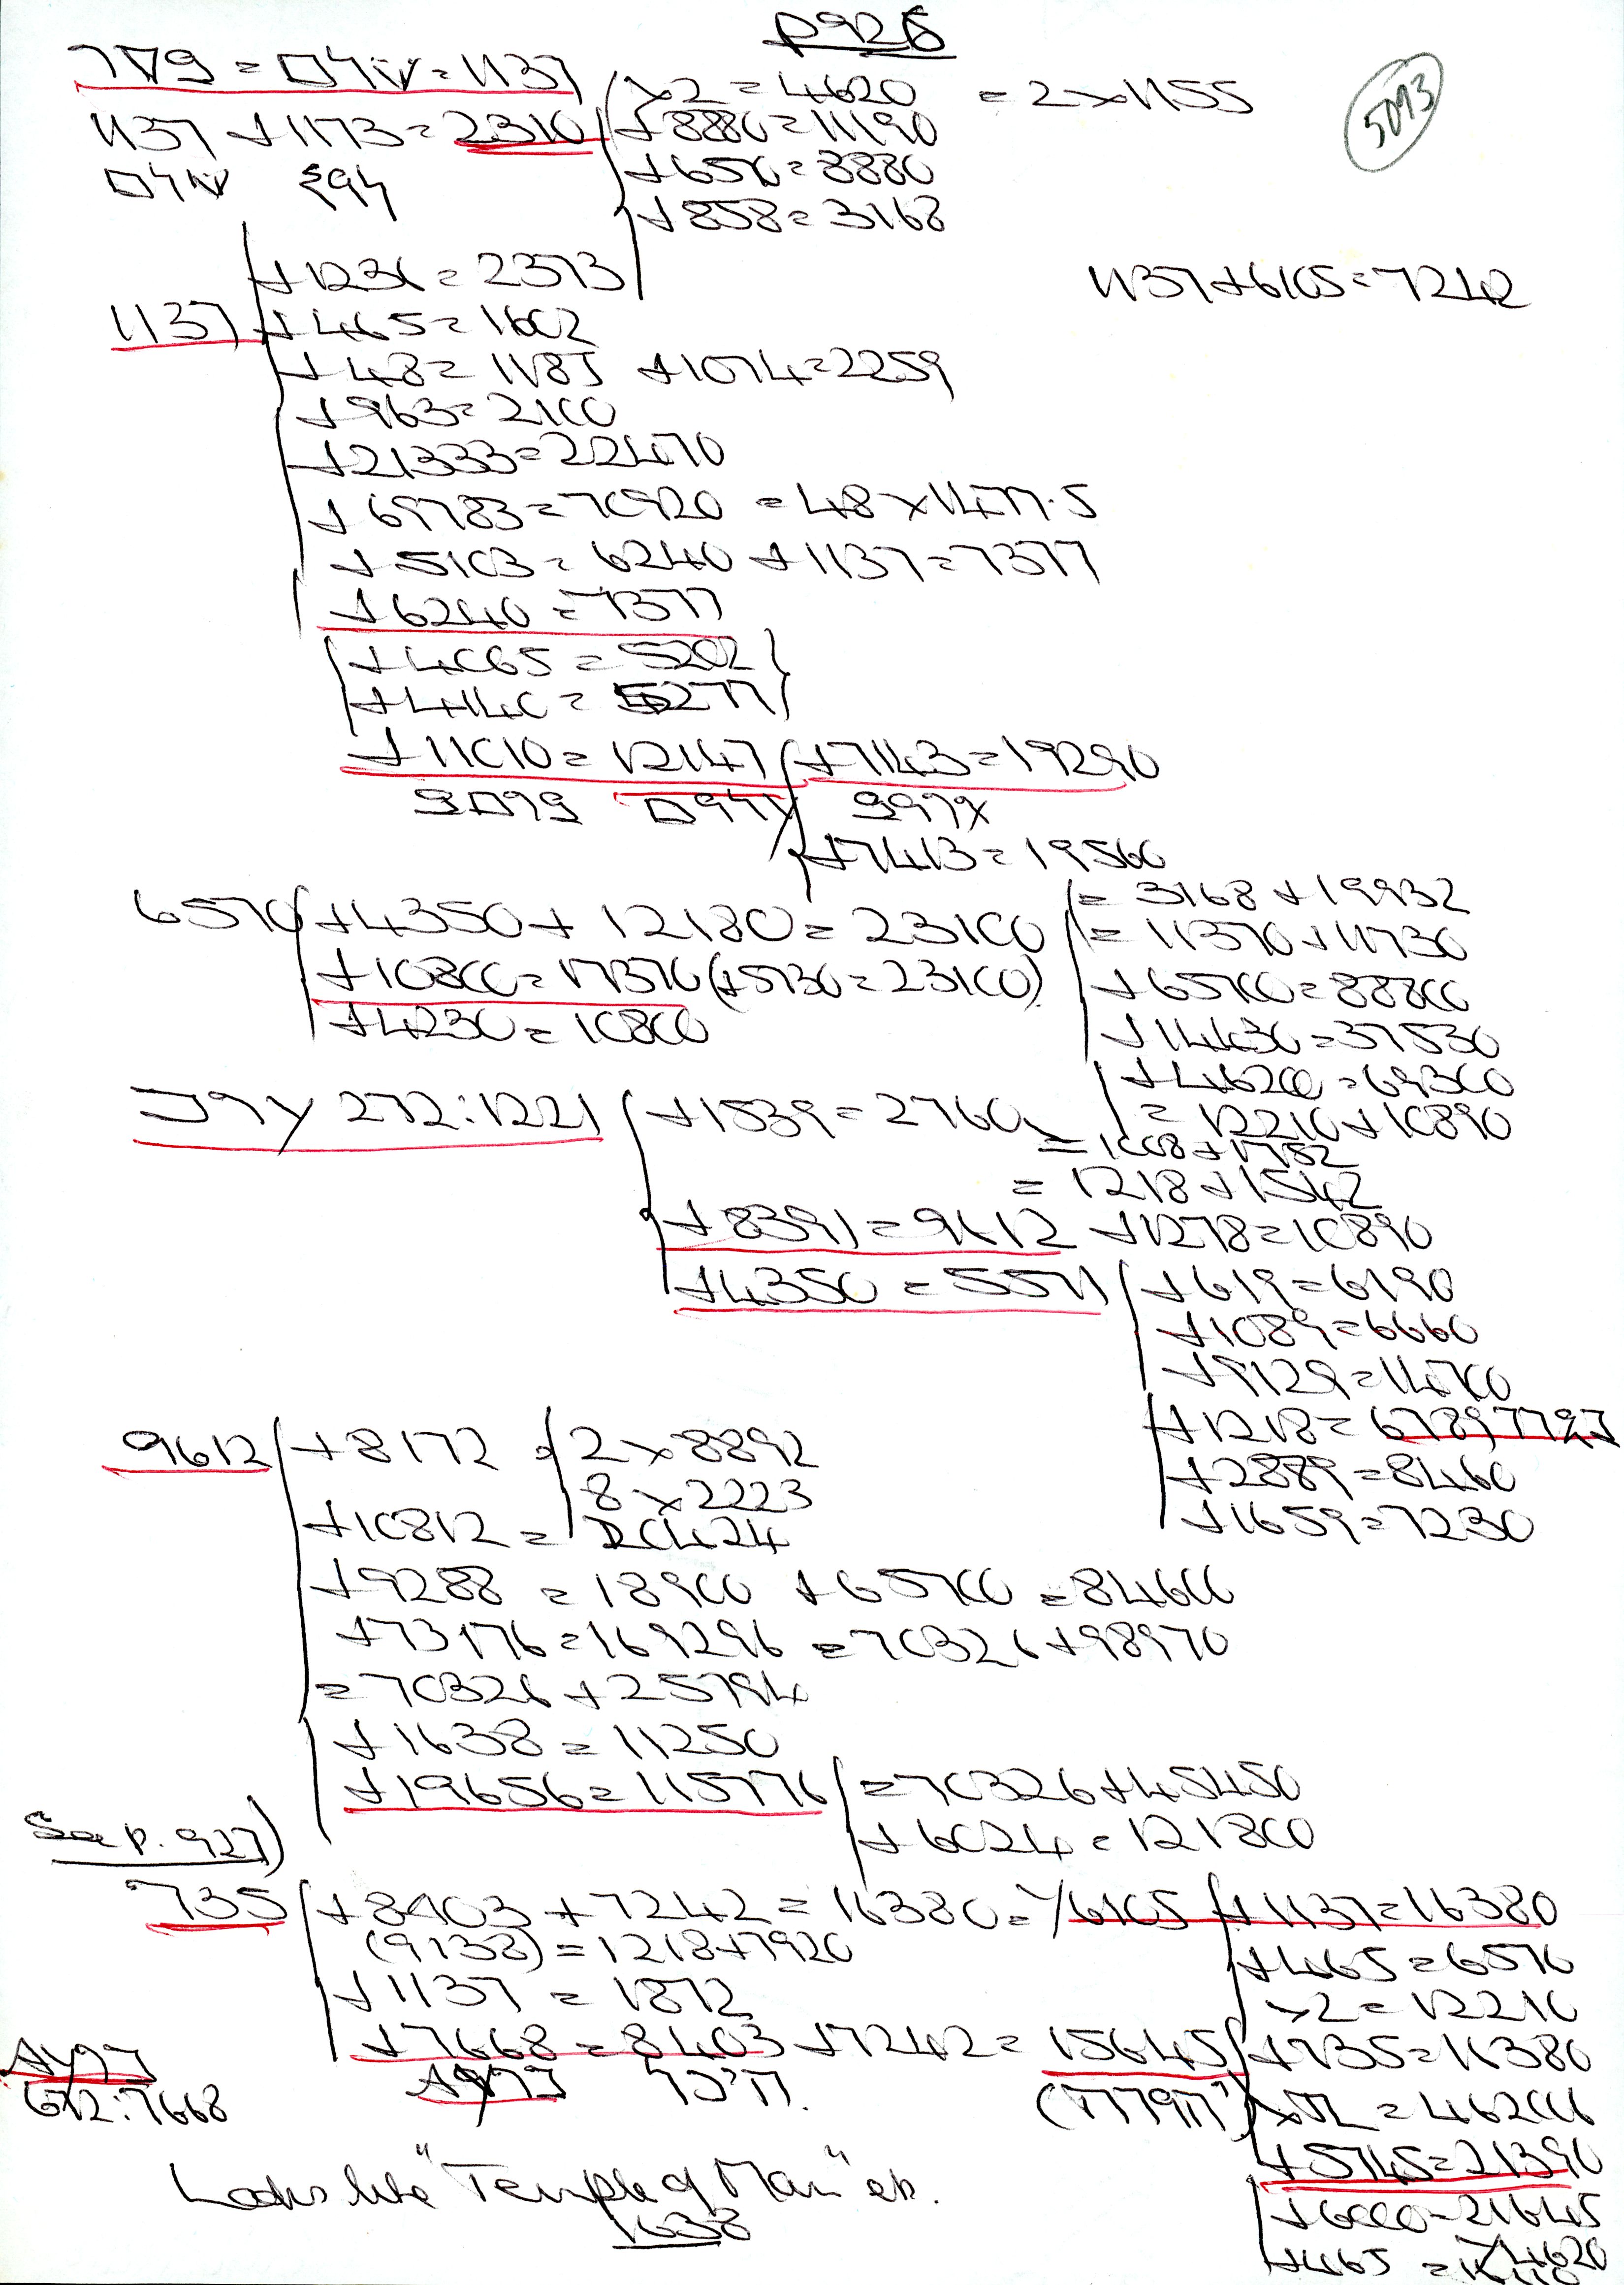 P926
5093
= 1137
1137 + 1173 = 2310
x2 = 4620 = 2 x 1155
+ 8880 = 11190
+ 6570 = 8880
+ 858 = 3168
1137 + 6105 = 7242
1137
+ 1236 = 2373
+ 465 = 1602
+ 48 = 1185 + 1074 = 2259
+ 963 = 2100
+ 21333 = 22470
+ 69783 = 70920 = 48 x 1477.5
+ 5103 = 6240 + 1137 = 7377
+ 6240 = 7377
+ 4065 = 5202
+ 4140 = 5277
+ 11010 = 12147 + 7143 = 19290
+ 7413 = 19560
6570 + 4350 + 12180 = 23100
+ 10800 = 17370 (+ 5730 = 23100)
+ 4230 = 10800
= 3168 + 19932
= 11370 + 11730
+ 65700 = 88800
+ 14430 = 37530
+ 46200 = 69300
= 12210 + 10890
272 : 1221 + 1539 = 2760
= 1008 + 1752
= 1218 + 1542
+ 8391 = 9612 + 1278 = 10890
+ 4350 = 5571
+ 619 = 6190
+ 1089 = 6660
+ 9129 = 14700
+ 1218 = 6789
+ 2889 = 8460
+ 1659 = 7230
9612 + 8172
2 x 8892
8 x 2223
+ 10812 = 20424
+ 9288 = 18900 + 65700 = 84600
+ 73176 = 169296 = 70326 + 98970
= 70326 + 25794
+ 1638 = 11250
+ 19656 = 115776 = 70326 + 45450
+ 6024 = 121800
See p. 927)
735 + 8403 + 7242 = 16380 = 6105 + 1137 = 16380
(9138) = 1218 + 7920
+ 465 = 6570
+ 1137 = 1872
x2 = 12210
+ 7668 = 8403 + 7242 = 15645 + 735 = 16380
672 : 7668
+ 5745 = 21390
Looks like "Temple of Man" etc.
1638
+ 6000 = 21645